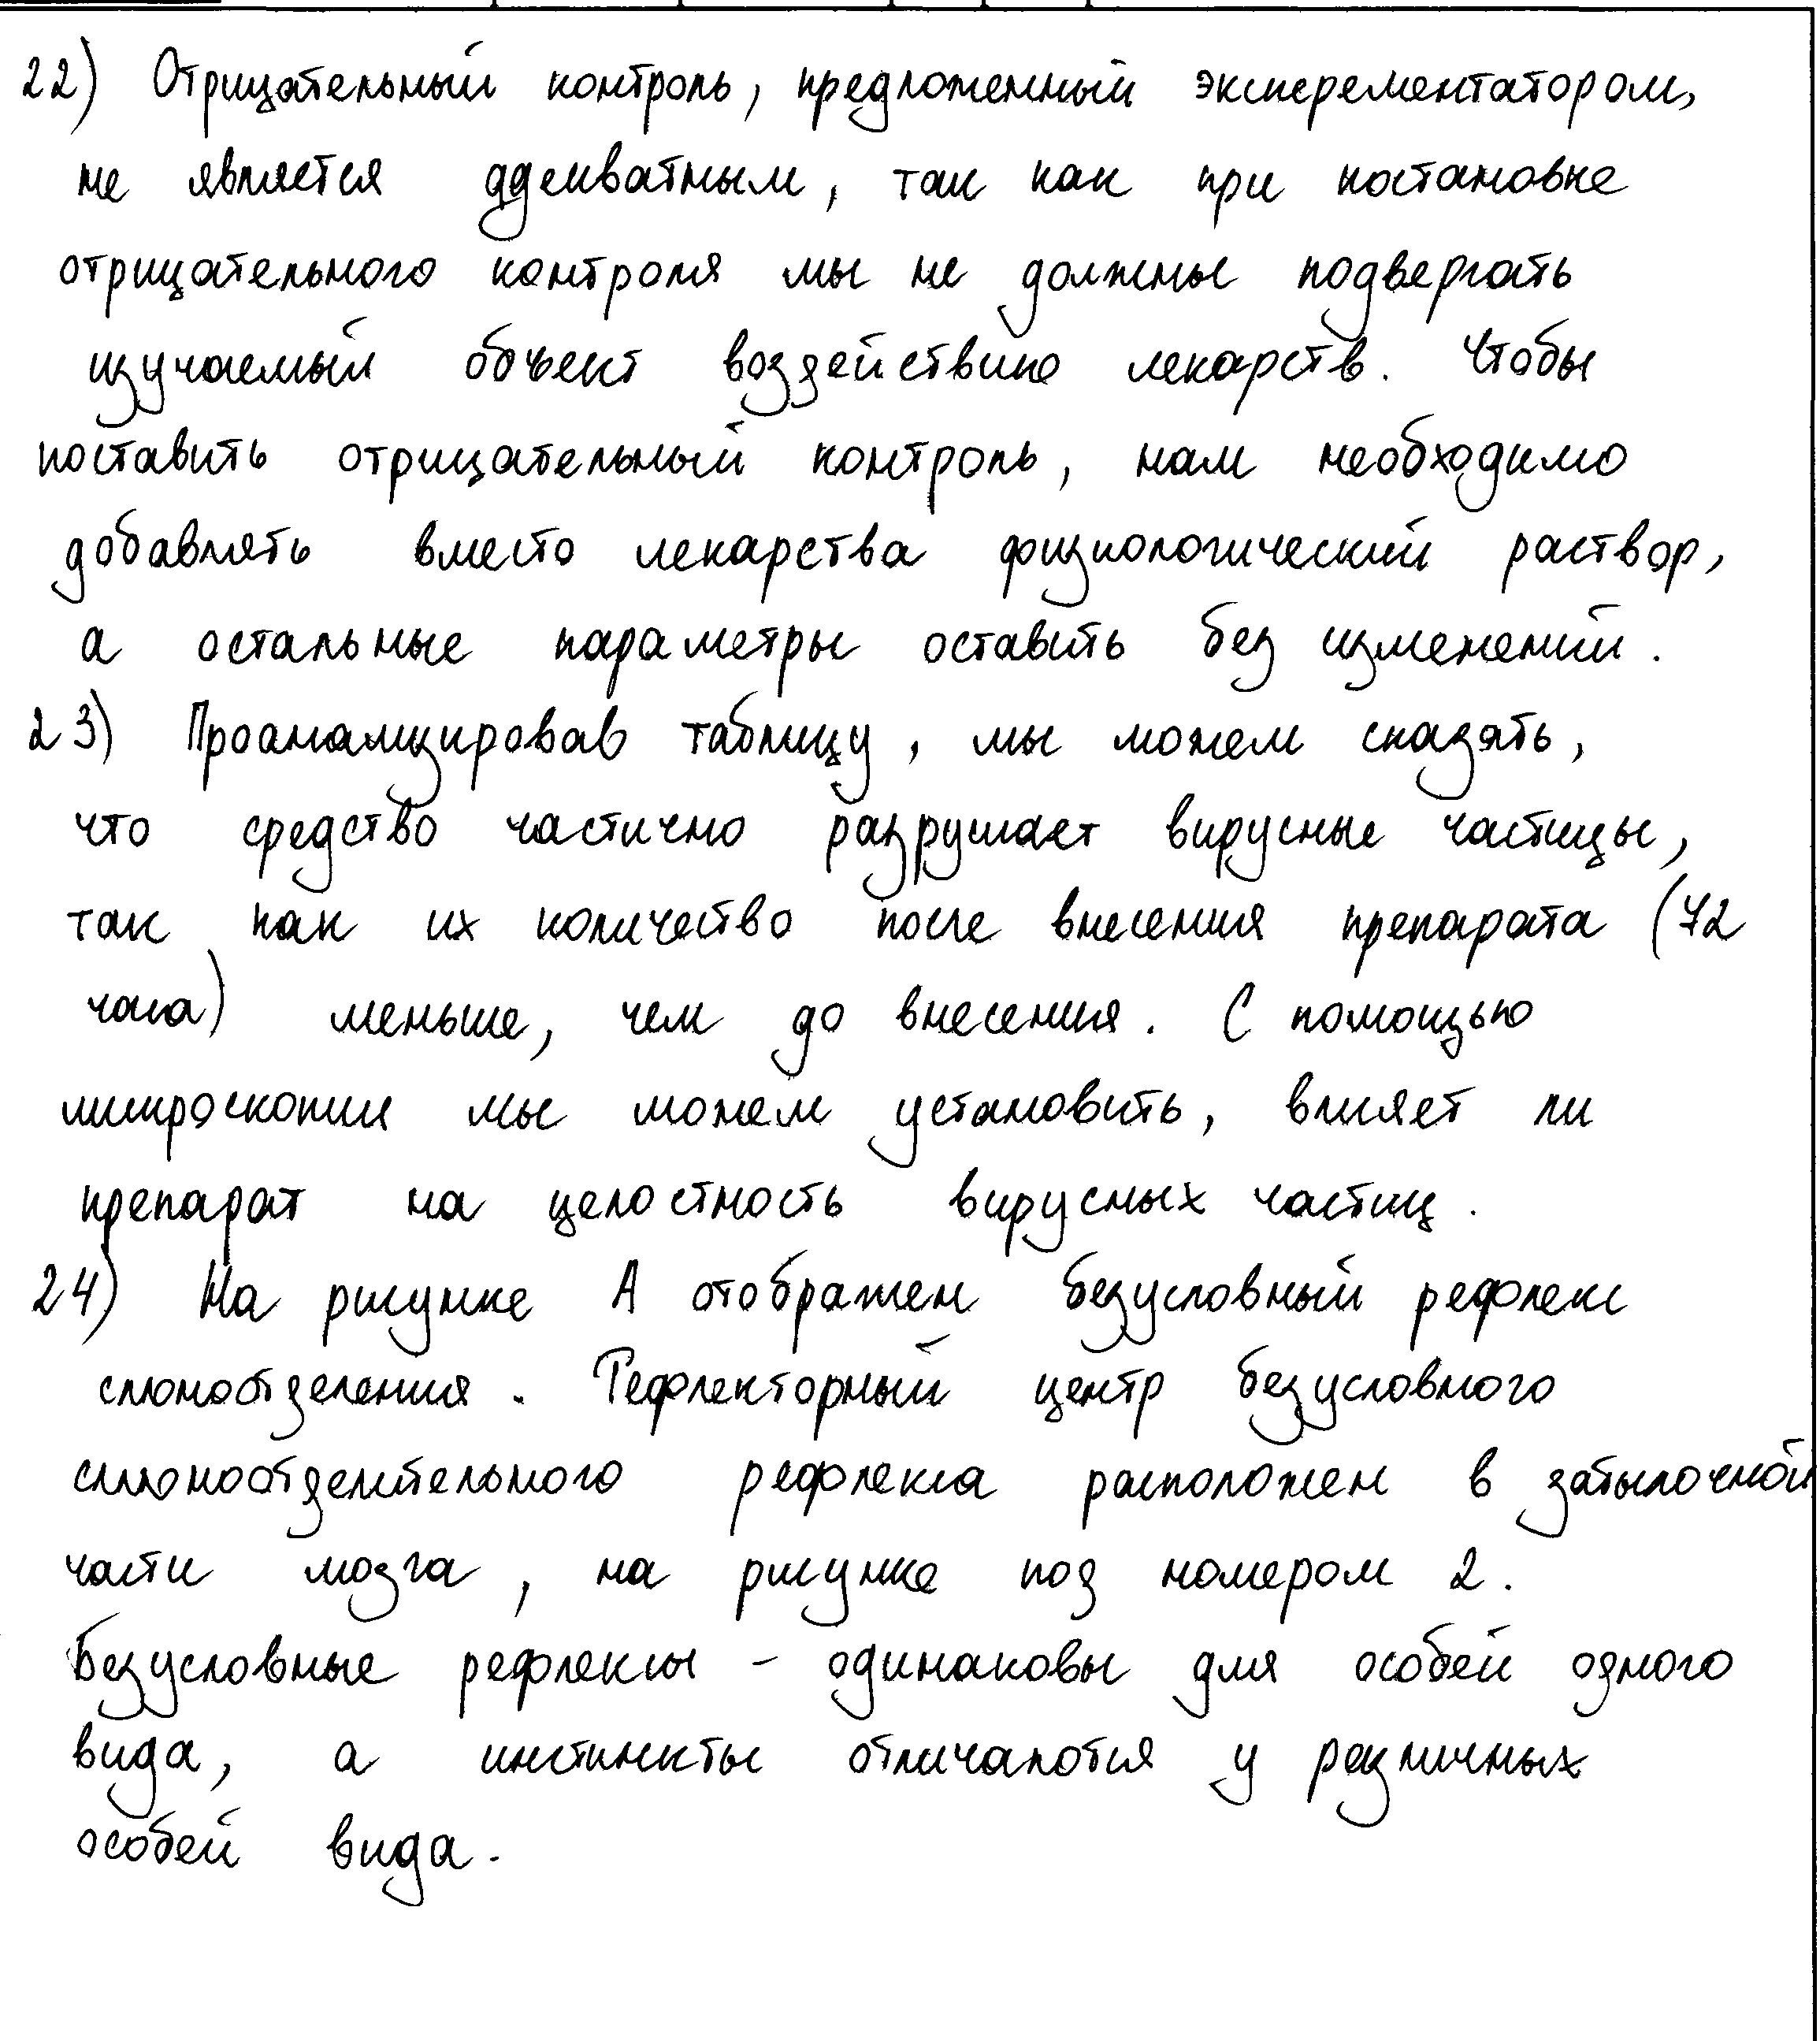 22) Отрицательный контроль, предложенный эксперементатором,
не является адекватным, так как при постановке
отрицательного контроля мы не должны подвергать
изучаемый объект воздействию лекарств. Чтобы
поставить отрицательный контроль, нам необходимо
добавлять вместо лекарства физиологический раствор,
а остальные параметры оставить без изменений.
23) Проанализировав таблицу, мы можем сказать,
что средство частично разрушает вирусные частицы,
так как их количество после внесения препарата (72
часа) меньше, чем до внесения. С помощью
микроскопии мы можем установить, влияет ли
препарат на целостность вирусных частиц.
24) На рисунке А отображен безусловный рефлекс
слюноотделения. Рефлекторный центр безусловного
слюноотделительного рефлекса расположен в затылочной
части мозга, на рисунке под номером 2.
Безусловные рефлексы - одинаковы для особей одного
вида, а инстинкты отличаются у различных
особей вида.